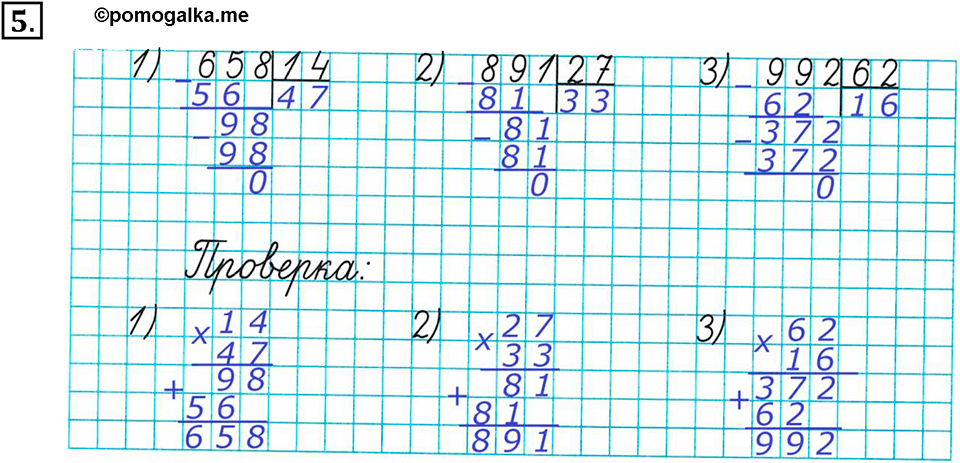 5. ©pomogalka.me
1) 658 14 2) 891 27 3) 992 62
- 56 47 - 81 33 - 62 16
- 98 - 81 - 372
98 81 372
0 0 0
Проверка:
1) x 14 2) x 27 3) x 62
47 33 16
+ 98 + 81 + 372
56 81 62
658 891 992